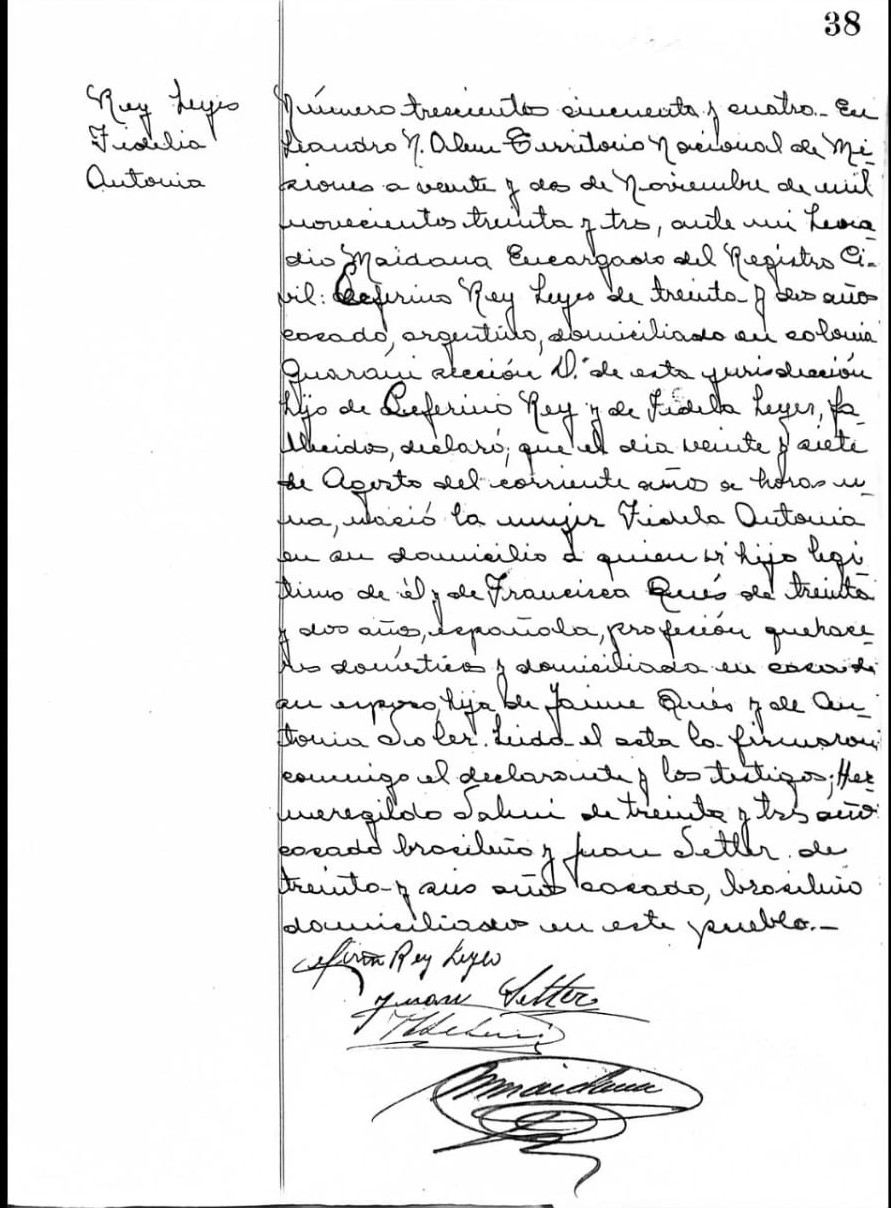 38
Rey Leyes
Fidelia
Antonia
Número trescientos cincuenta y cuatro.- En
Leandro N. Alem Territorio Nacional de Mi-
siones a veinte y dos de Noviembre de mil
novecientos treinta y tres, ante mi Leoca-
dio Maidana Encargado del Registro Ci-
vil: Ceferino Rey Leyes de treinta y dos años
casado, argentino, domiciliado en colonia
Guarani sección D. de esta jurisdicción
hijo de Ceferino Rey y de Fidela Leyes, fa-
llecidos, declaró; que el dia veinte y siete
de Agosto del corriente año a horas u-
na, nació la mujer Fidela Antonia
en su domicilio a quien vi hijo legi-
timo de él y de Francisca Qués de treinta
y dos años, española, profesión quehace-
res domésticos y domiciliada en casa de
su esposo, hija de Jaime Qués y de An-
tonia Soler. Leida el acta la firmaron
conmigo el declarante y los testigos; Her-
meregildo Saluni de treinta y tres año
casado brasileño y Juan Setter de
treinta y seis años casado, brasileño
domiciliados en este pueblo.-
Rey Leyes
Juan Setter
Maidana